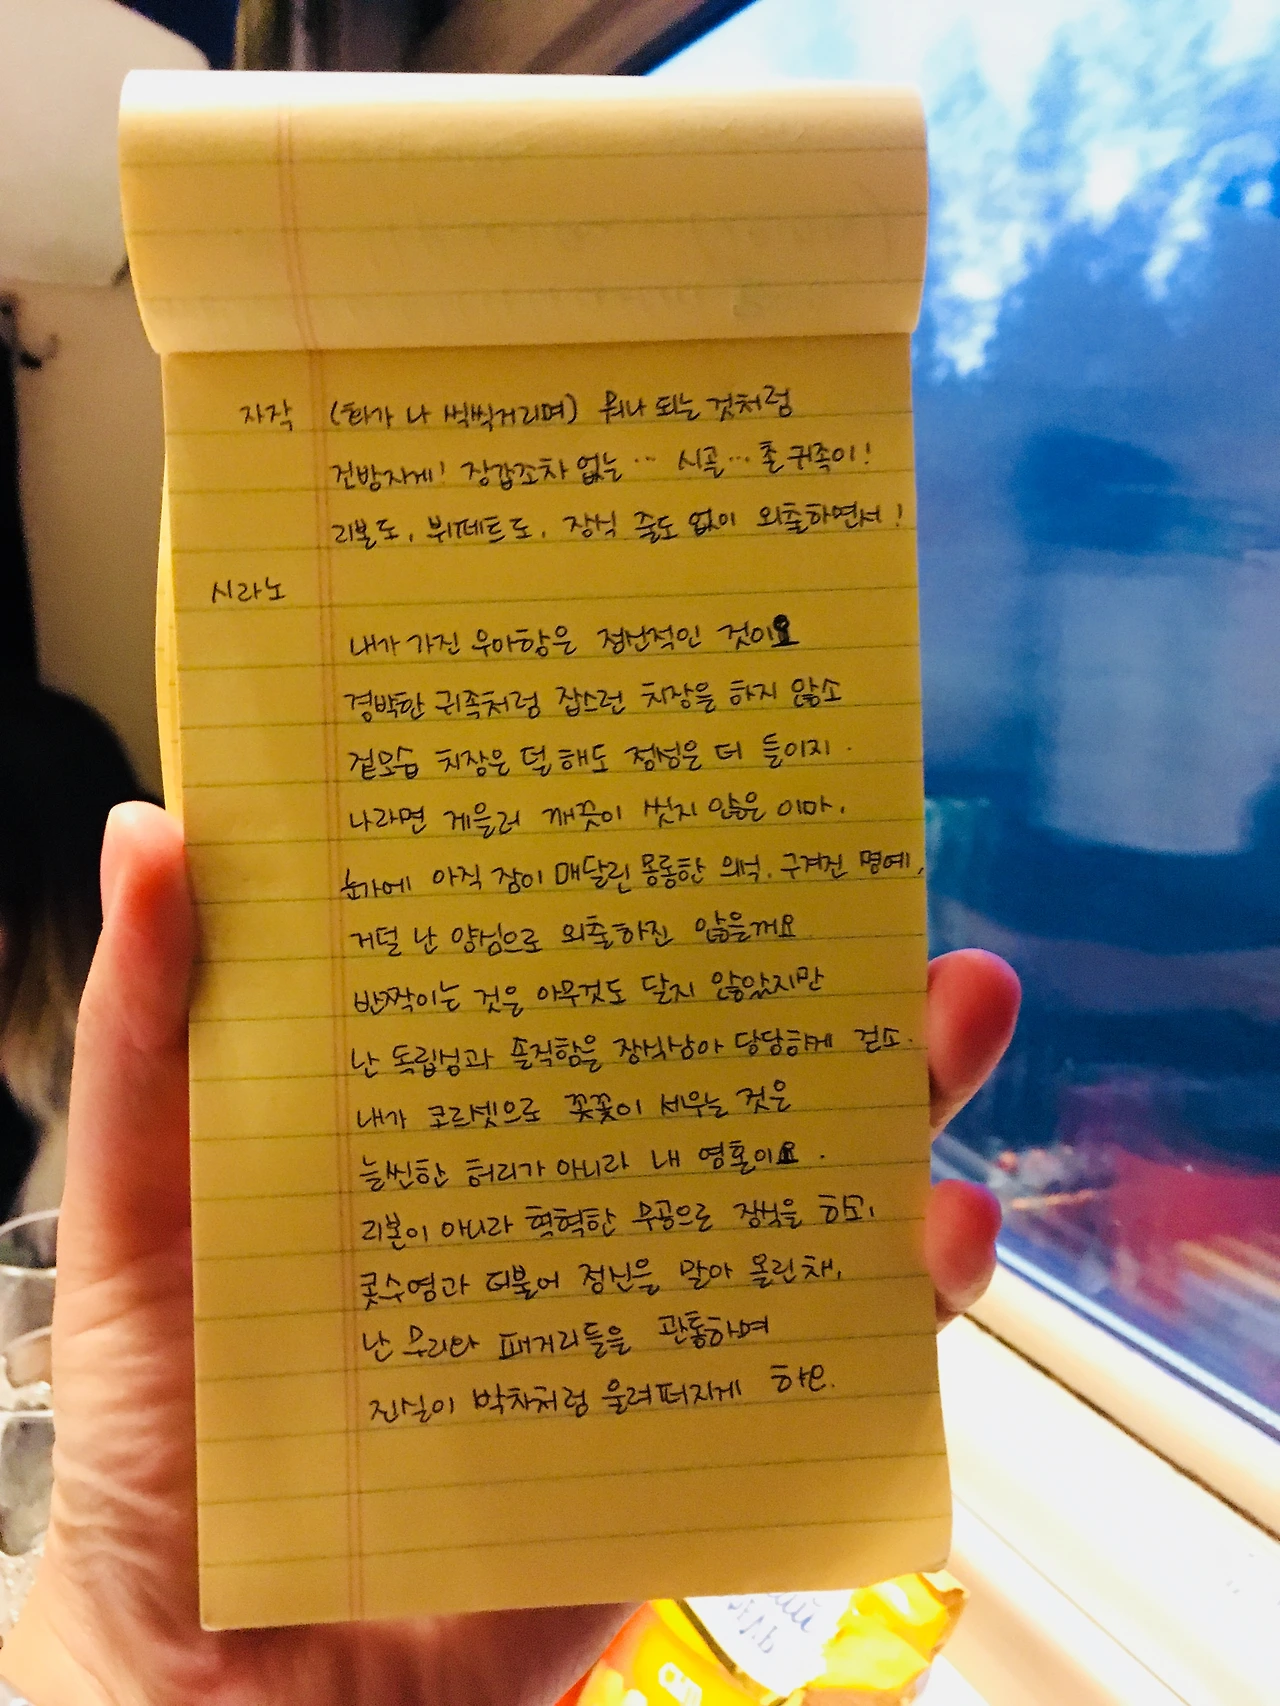 자작 (화가 나 씩씩거리며) 뭐나 되는 것처럼
건방지게! 장갑조차 없는 … 시골… 촌 귀족이!
리본도, 뷔페트도, 장식 줄도 없이 외출하면서!
시라노
내가 가진 우아함은 정신적인 것이요
경박한 귀족처럼 잡스런 치장을 하지 않소
겉모습 치장은 덜 해도 정성은 더 들이지.
나라면 게을러 깨끗이 씻지 않은 이마,
눈가에 아직 잠이 매달린 몽롱한 의식, 구겨진 명예,
거덜 난 양심으로 외출하진 않을꺼요
반짝이는 것은 아무것도 달지 않았지만
난 독립성과 솔직함을 장식삼아 당당하게 걷소.
내가 코르셋으로 꼿꼿이 세우는 것은
늘씬한 허리가 아니라 내 영혼이요.
리본이 아니라 혁혁한 무공으로 장식을 하고,
콧수염과 더불어 정신을 말아 올린 채,
난 무리와 패거리들을 관통하며
진실이 박차처럼 울려퍼지게 하오.